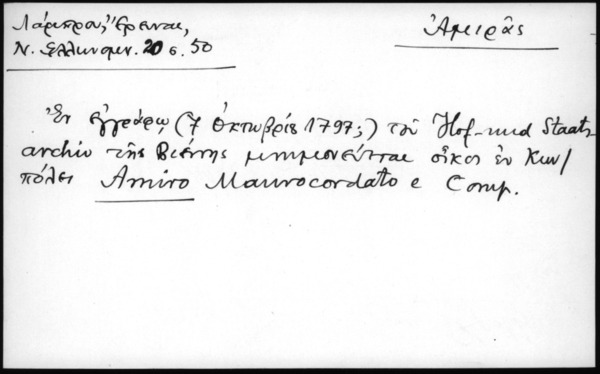 Λάμπρου, Ἔρευναι,
Ν. Ἑλληνομν. 20 σ. 50
Ἀμιρᾶς
Ἐν ἐγγράφῳ (7 Ὀκτωβρίου 1797;) τοῦ Hof-und Staats
archiv τῆς Βιέννης μνημονεύεται οἶκος ἐν Κων/
πόλει Amiro Maurocordato e Comp.